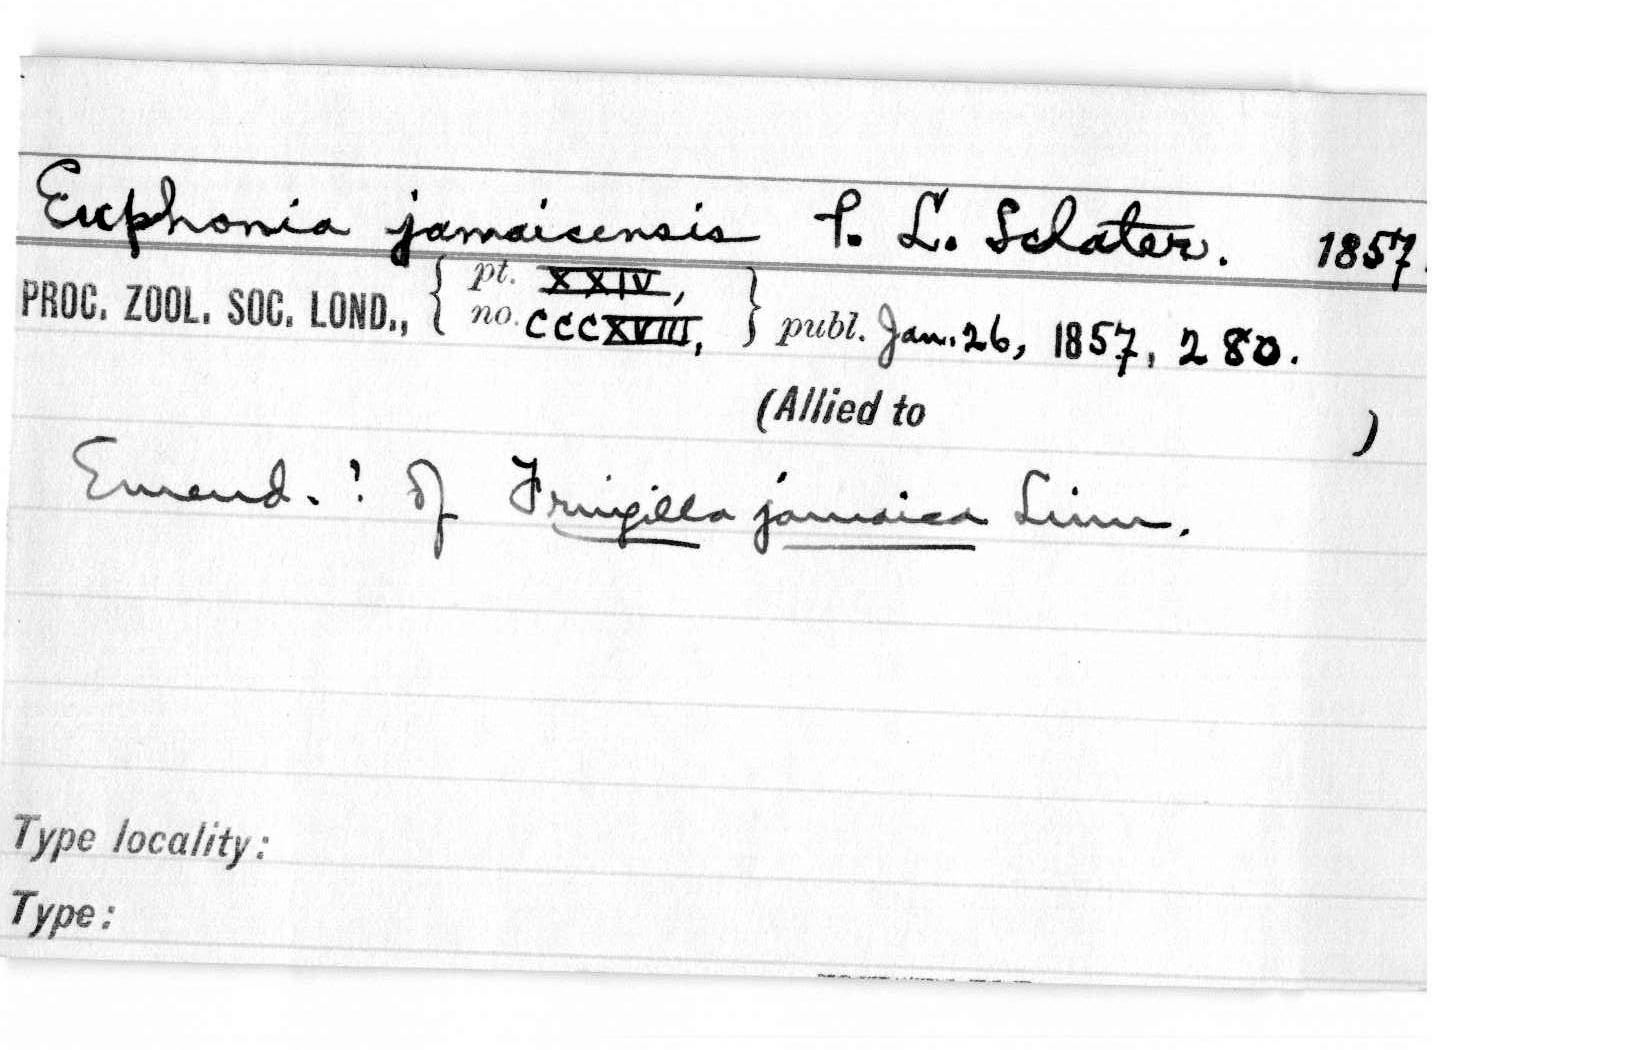 Euphonia jamaicensis P. L. Sclater. 1857.
PROC. ZOOL. SOC. LOND., { pt. XXIV, no. CCCXVIII, } publ. Jan. 26, 1857, 280.
(Allied to )
Emend. ! of Fringilla jamaica Linn.
Type locality:
Type: